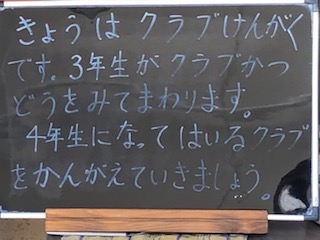 きょうは クラブけんがく
です。3年生がクラブかつ
どうをみてまわります。
4年生になってはいるクラブ
をかんがえていきましょう。